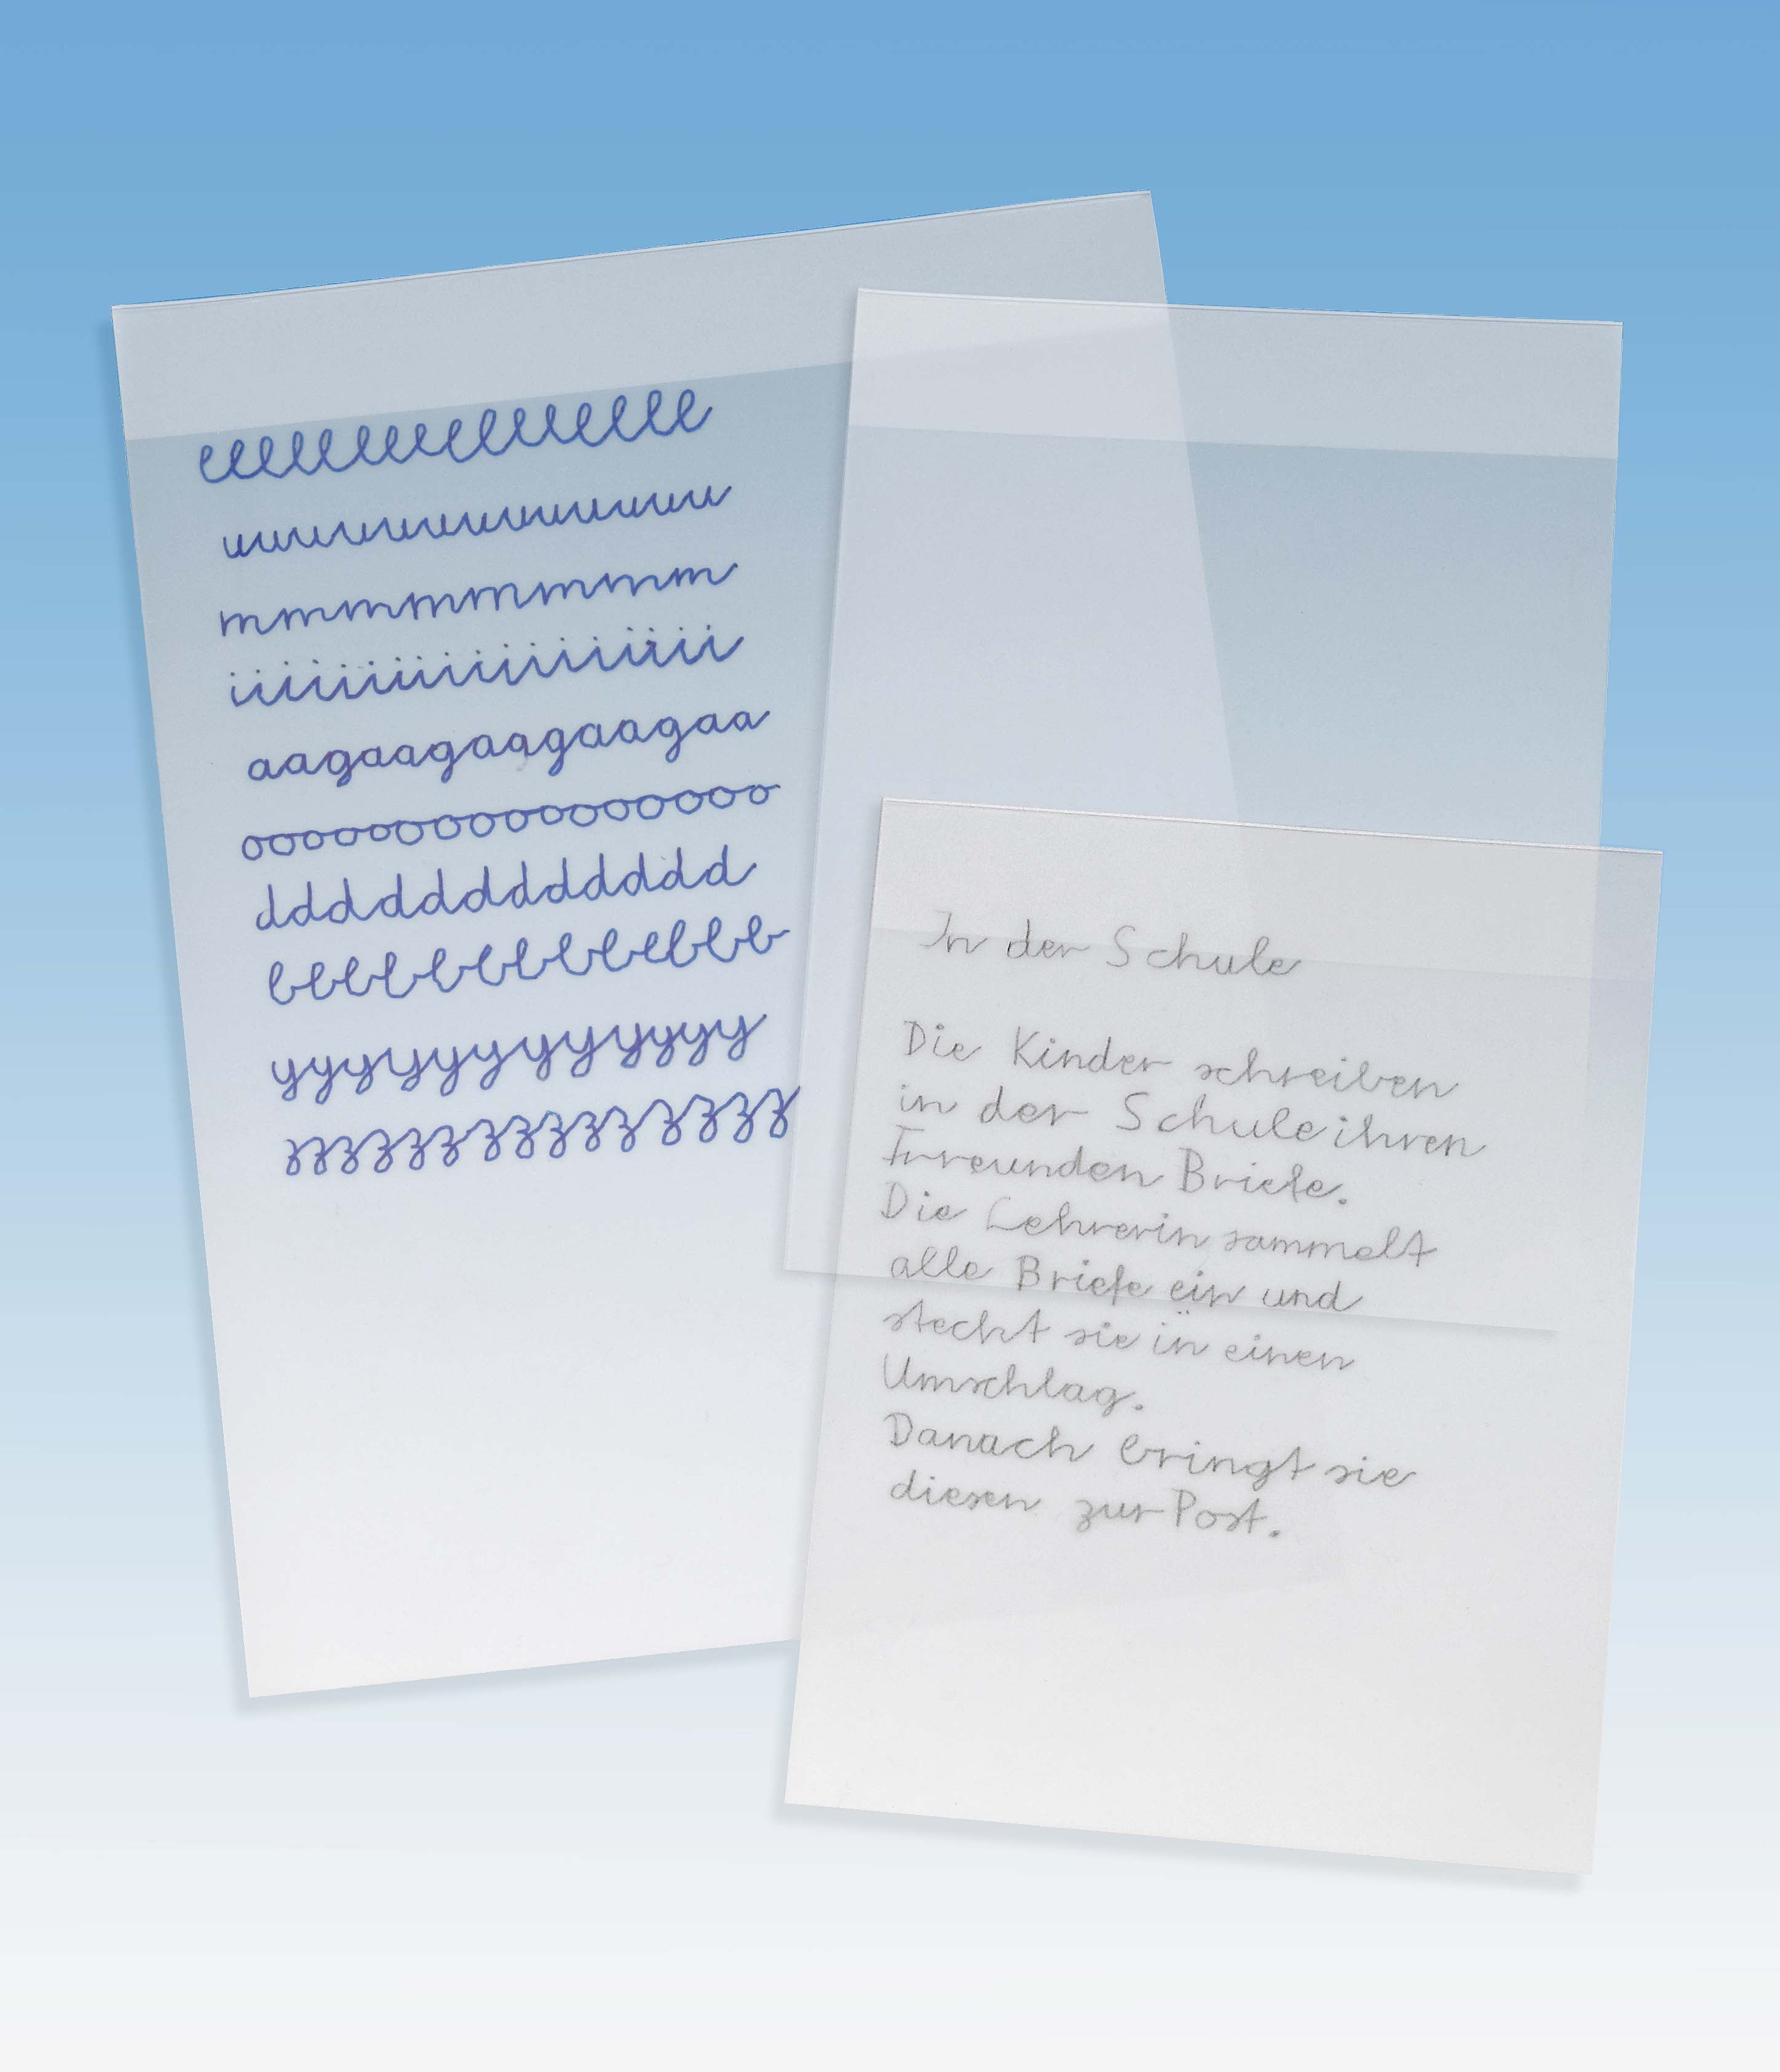 eeeeeeeeeeeeeeee
uuuuuuuuuuuuu
mmmmmmmm
iiiiiiiiiiiiiiiiii
aagaagaagaagaa
oooooooooooooooo
dddddddddddd
bbbbbbbbbbbb
yyyyyyyyyyyyy
zzzzzzzzzzzzzz
In der Schule
Die Kinder schreiben
in der Schule ihren
Freunden Briefe.
Die Lehrerin sammelt
alle Briefe ein und
steckt sie in einen
Umschlag.
Danach bringt sie
diesen zur Post.